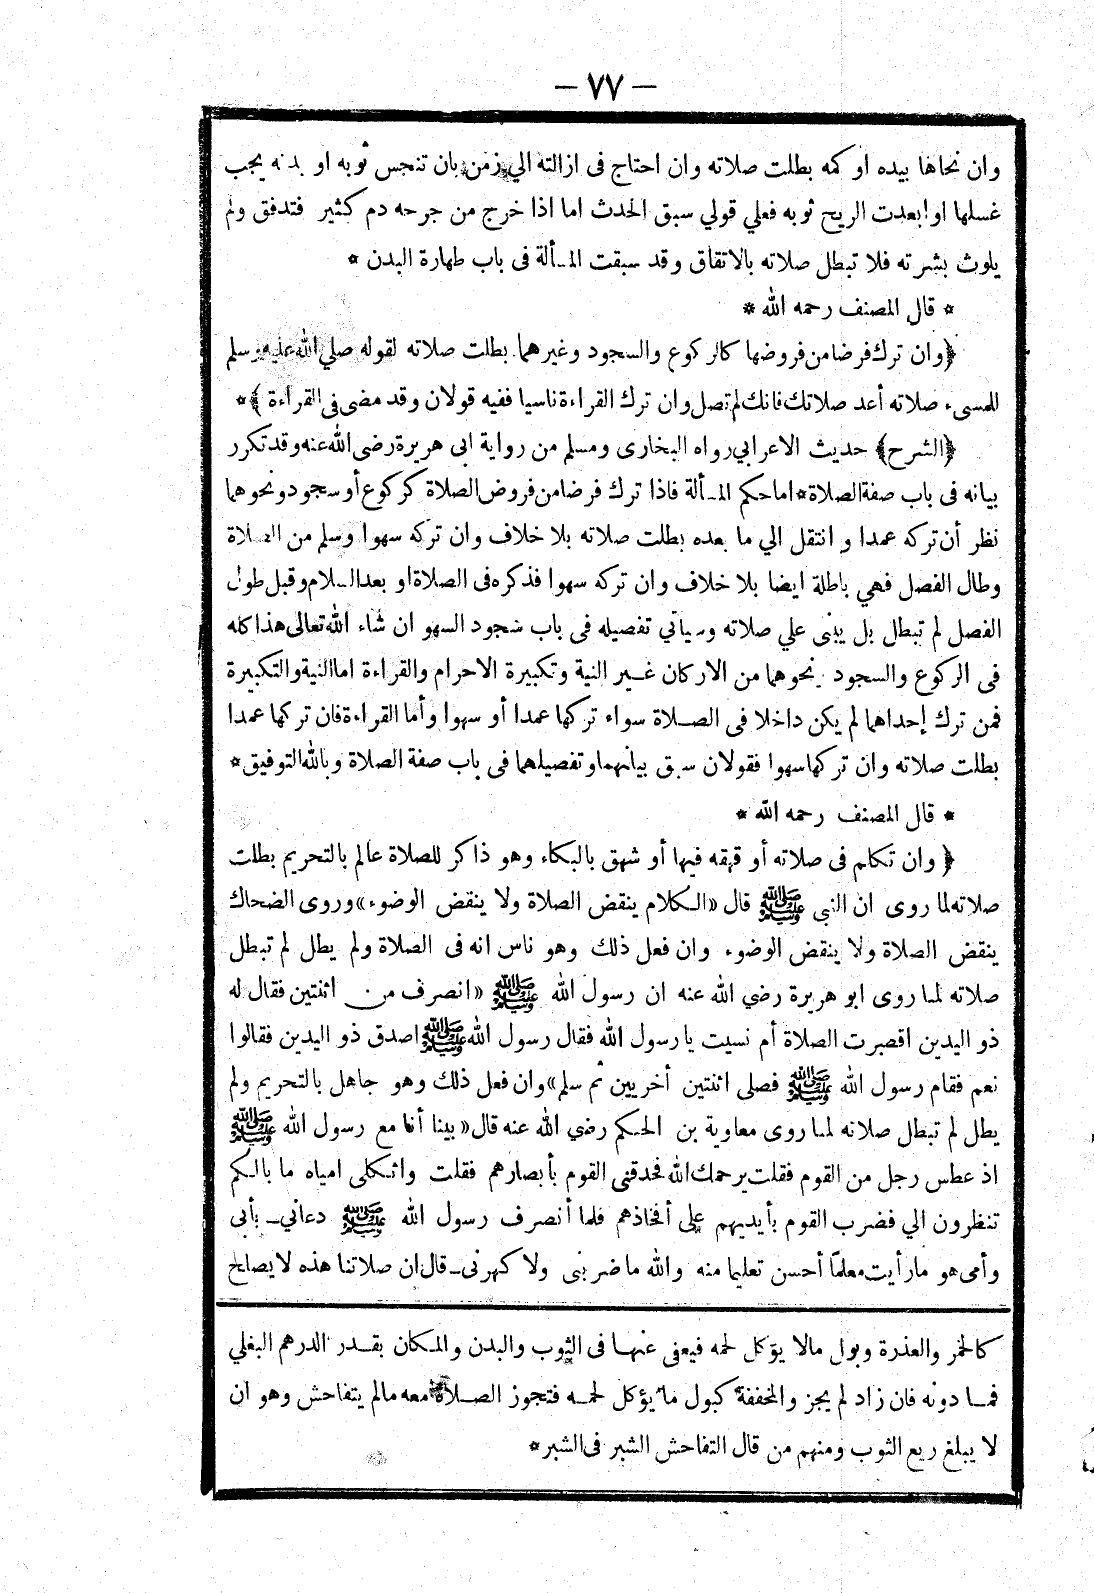 — ٧٧ —
وان نحاها بيده او كمه بطلت صلاته وان احتاج فى ازالته الي زمن بان تنجس ثوبه او بدنه يجب
غسلها او ابعدت الريح ثوبه فعلي قولي سبق الحدث اما اذا خرج من جرحه دم كثير فتدفق ولم
يلوث بشرته فلا تبطل صلاته بالاتفاق وقد سبقت المسألة فى باب طهارة البدن *
* قال المصنف رحمه الله *
﴿وان ترك فرضا من فروضها كالركوع والسجود وغيرهما بطلت صلاته لقوله صلي الله عليه وسلم
للمسىء صلاته أعد صلاتك فانك لم تصل وان ترك القراءة ناسيا ففيه قولان وقد مضى فى القراءة﴾*
﴿الشرح﴾ حديث الاعرابي رواه البخارى ومسلم من رواية ابى هريرة رضى الله عنه وقد تكرر
بيانه فى باب صفة الصلاة* اما حكم المسألة فاذا ترك فرضا من فروض الصلاة كركوع أو سجود ونحوهما
نظر أن تركه عمدا وانتقل الي ما بعده بطلت صلاته بلا خلاف وان تركه سهوا وسلم من الصلاة
وطال الفصل فهي باطلة ايضا بلا خلاف وان تركه سهوا فذكره فى الصلاة او بعد السلام وقبل طول
الفصل لم تبطل بل يبنى علي صلاته وسيأتي تفصيله فى باب سجود السهو ان شاء الله تعالى هذا كله
فى الركوع والسجود ونحوهما من الاركان غير النية وتكبيرة الاحرام والقراءة اما النية والتكبيرة
فمن ترك إحداهما لم يكن داخلا فى الصلاة سواء تركها عمدا أو سهوا وأما القراءة فان تركها عمدا
بطلت صلاته وان تركها سهوا فقولان سبق بيانهما وتفصيلهما فى باب صفة الصلاة وبالله التوفيق*
* قال المصنف رحمه الله *
﴿ وان تكلم فى صلاته أو قهقه فيها أو شهق بالبكاء وهو ذاكر للصلاة عالم بالتحريم بطلت
صلاته لما روى ان النبى ﷺ قال «الكلام ينقض الصلاة ولا ينقض الوضوء» وروى الضحاك
ينقض الصلاة ولا ينقض الوضوء وان فعل ذلك وهو ناس انه فى الصلاة ولم يطل لم تبطل
صلاته لما روى ابو هريرة رضي الله عنه ان رسول الله ﷺ «انصرف من اثنتين فقال له
ذو اليدين اقصرت الصلاة أم نسيت يارسول الله فقال رسول الله ﷺ اصدق ذو اليدين فقالوا
نعم فقام رسول الله ﷺ فصلى اثنتين أخريين ثم سلم» وان فعل ذلك وهو جاهل بالتحريم ولم
يطل لم تبطل صلاته لما روى معاوية بن الحكم رضي الله عنه قال «بينا أنا مع رسول الله ﷺ
اذ عطس رجل من القوم فقلت يرحمك الله فحدقنى القوم بأبصارهم فقلت واثكلى امياه ما بالكم
تنظرون الي فضرب القوم بأيديهم على أفخاذهم فلما أنصرف رسول الله ﷺ دعاني ـ بأبى
وأمى هو مارأيت معلمًا أحسن تعليما منه والله ما ضربنى ولا كهرنى ـ قال ان صلاتنا هذه لا يصلح
كالخمر والعذرة وبول مالا يؤكل لحمه فيعفى عنها فى الثوب والبدن والمكان بقدر الدرهم البغلي
فما دونه فان زاد لم يجز والمخففة كبول ما يؤكل لحمه فتجوز الصلاة معه مالم يتفاحش وهو ان
لا يبلغ ربع الثوب ومنهم من قال التفاحش الشبر فى الشبر*